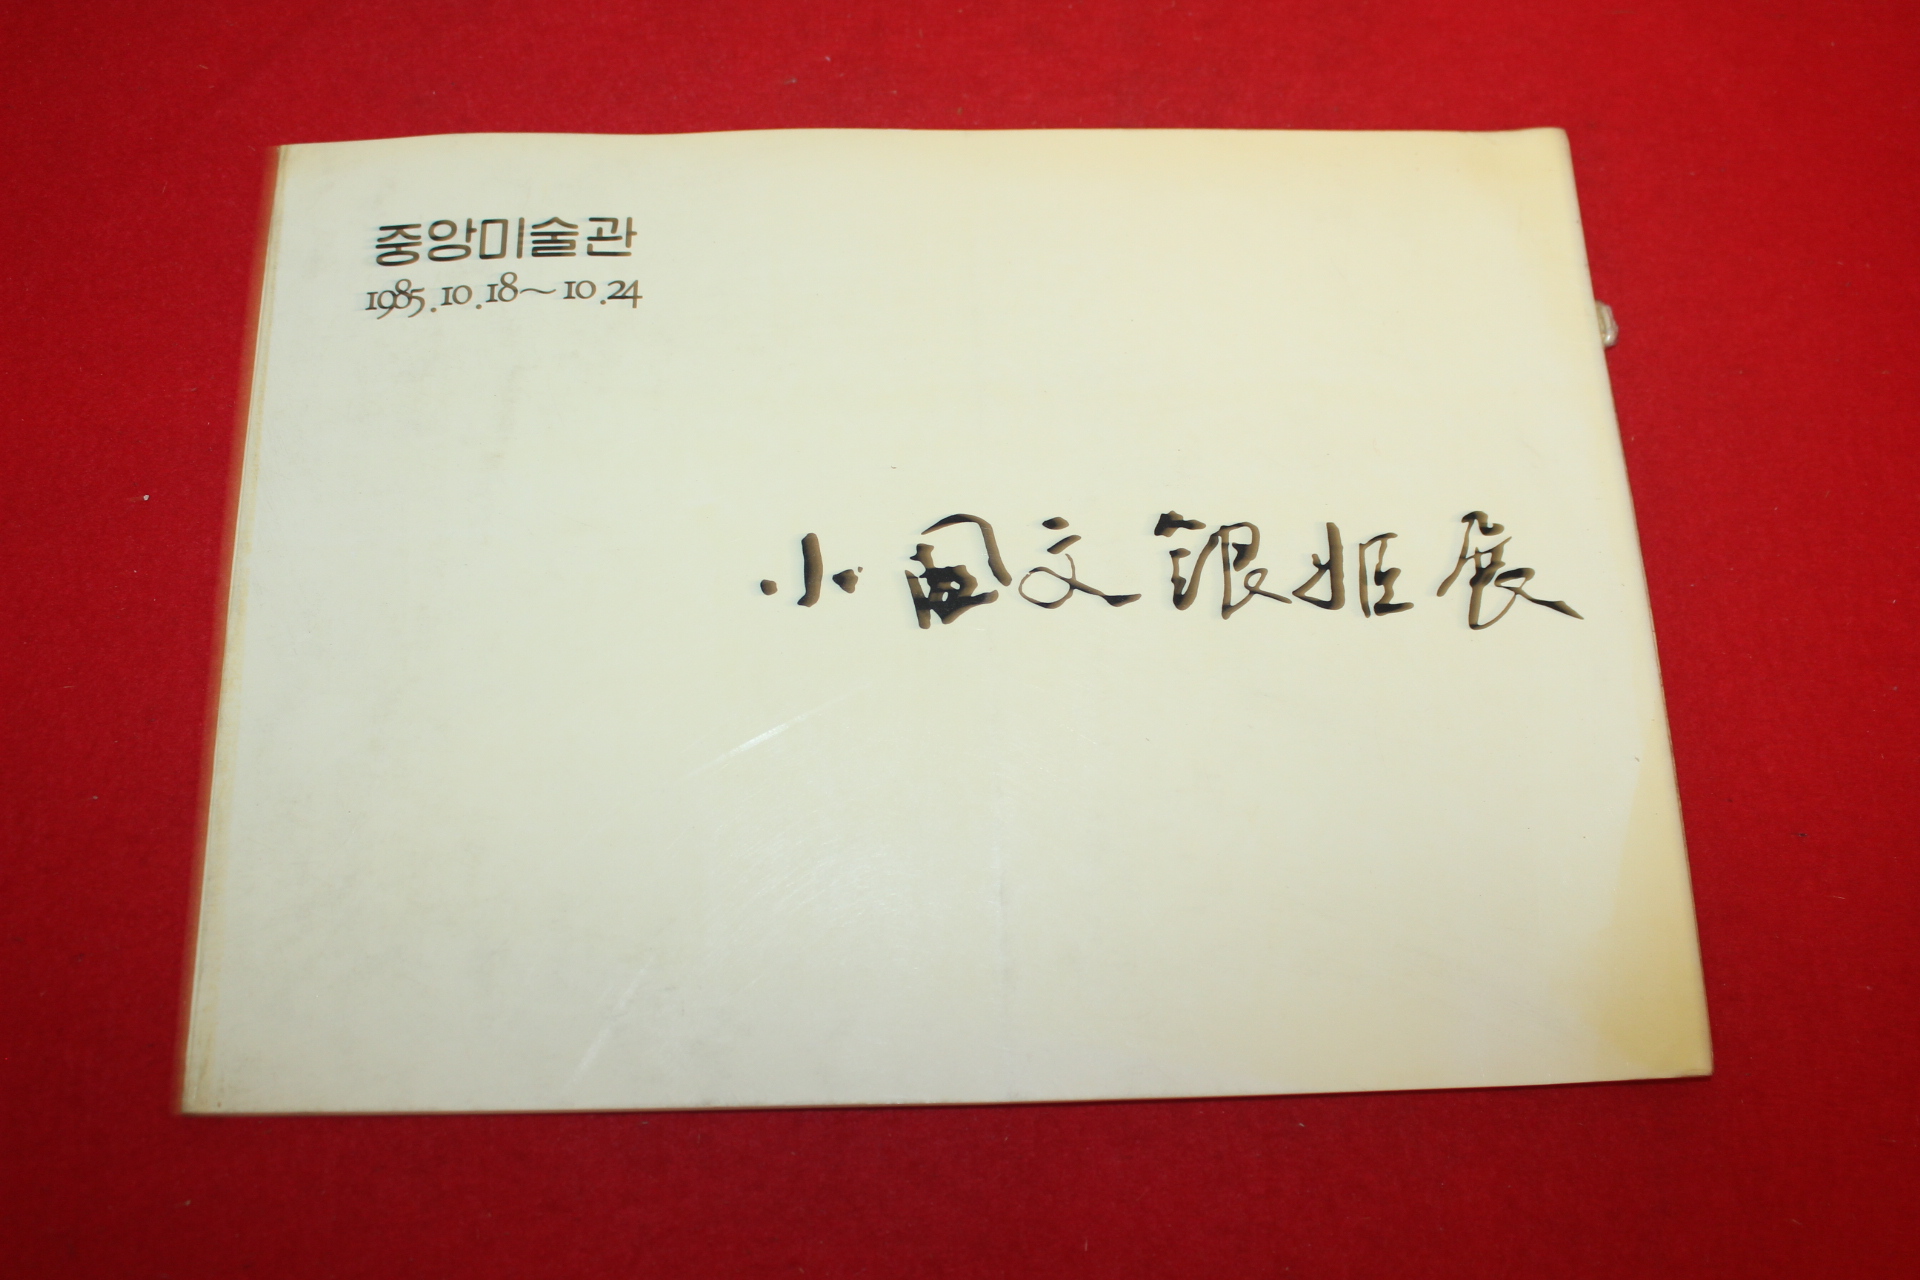 중앙미술관
1985.10.18~10.24
小 文銀姬展